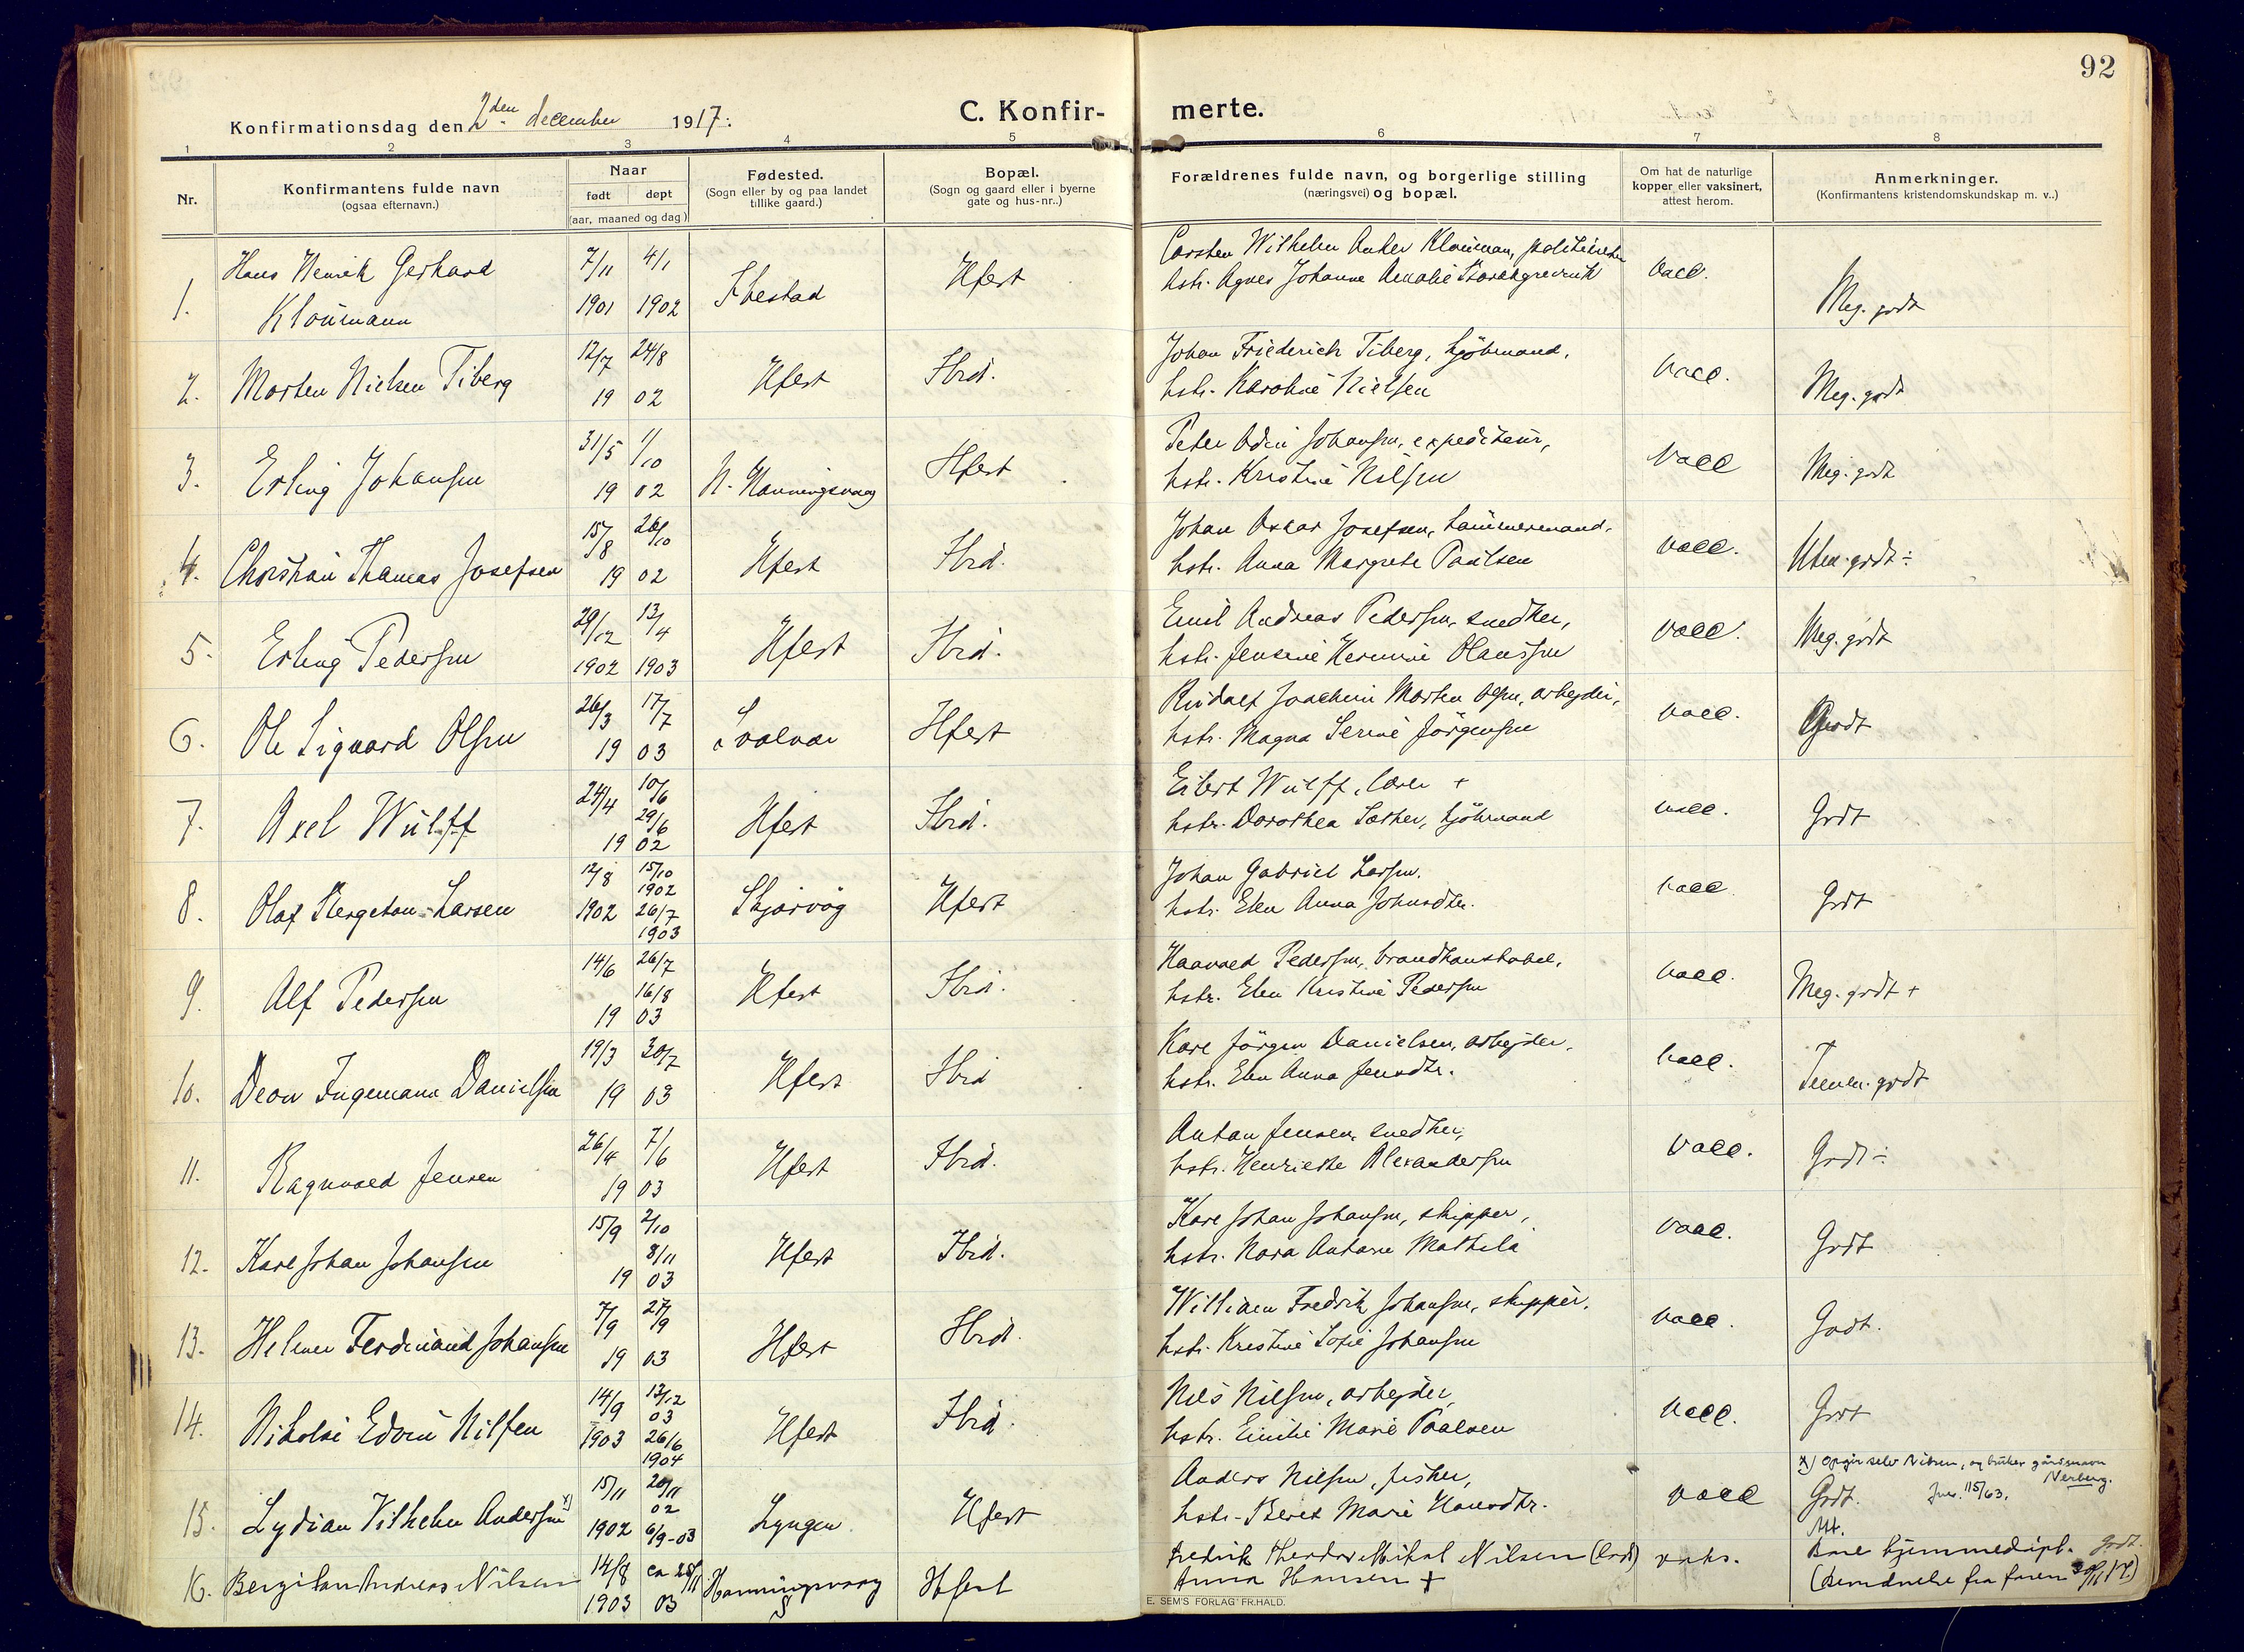 92
Konfirmationsdag den 2den december 1917.
C. Konfir-
merte.
1 2 3 4 5 6 7 8
Nr.
Konfirmantens fulde navn
(ogsaa efternavn.)
Naar
født døpt
(aar, maaned og dag)
Fødested.
(Sogn eller by og paa landet
tillike gaard.)
Bopæl.
(Sogn og gaard eller i byerne
gate og hus-nr..)
Forældrenes fulde navn, og borgerlige stilling
(næringsvei) og bopæl.
Om hat de naturlige
kopper eller vaksinert,
attest herom.
Anmerkninger.
(Konfirmantens kristendomskundskap m. v..)
1. Hans Henrik Gerhard
Kloumann
7/11 4/1
1901 1902
Ibestad
Hfest
Carsten Wilhelm Anker Kloumann,
hstr. Agnes Johanne Amalie
vacc.
Meg. godt
2. Morten Nielsen Tiberg
12/7 24/8
19 02
Hfest
Ibid.
Johan Friederich Tiberg, sjömand,
hstr. Karoline Nielsen
vacc.
Meg. godt
3. Erling Johansen
31/5 1/10
19 02
N. Honningsvaag
Hfest
Peter Odin Johansen, expediteur,
hstr. Kristine Nilsen
vacc
Meg. godt
4. Christian Thomas Josefsen
15/8 26/10
19 02
Hfest
Ibid.
Johan Oscar Josefsen, tømmermand.
hstr. Anna Margrete Paulsen
vacc.
Uten. godt ÷
5. Erling Pedersen
29/12 13/4
1902 1903
Hfest
Ibid.
Emil Andreas Pedersen, snedker,
hstr. Jensine Hermine Olaussen
vacc.
Meg. godt
6. Ole Sigvard Olsen
26/3 17/7
19 03
Svolvær
Hfest
Rudolf Joachim Morten Olsen, arbejder,
hstr. Magna Serine Jörgensen
vacc.
Godt
7. Axel Wulff
24/4 10/6
29/6
19 02
Hfest
Ibid.
Eilert Wulff, lærer +
hstr. Dorothea Sæther, sjömand
vacc.
Godt
8. Olaf Bergeton Larsen
12/8 15/10
1902
1902 26/7
1903
Skjærvög
Hfest
Johan Gabriel Larsen.
hstr. Elen Anna Johnsdtr.
vacc.
Godt
9. Alf Pedersen
14/6 26/7
16/8
19 03
Hfest
Ibid.
Haavald Pedersen, brandkonstabel,
hstr. Elen Kristine Pedersen
vacc.
Meg. godt +
10. Deon Ingemann Danielsen
19/3 30/7
19 03
Hfest
Ibid
Karl Jörgen Danielsen, arbejder,
hstr. Elen Anna Jensdtr.
vacc.
godt
11. Ragnvald Jensen
26/4 7/6
19 03
Hfest
Ibid.
Anton Jensen, snedker,
hstr. Henriette Alexandersen
vacc.
Godt ÷
12. Karl Johan Johansen
15/9 2/10
8/11
19 03
Hfest
Ibid.
Karl Johan Johansen, skipper,
hstr. Nora Antonie Mathila
vacc.
Godt
13. Helmer Ferdinand Johansen
7/9 27/9
19 03
Hfest
Ibid.
William Fredrik Johansen, skipper.
hstr. Kristine Sofie Johansen
vacc.
Godt.
14. Nikolai Edvin Nilsen
14/9 13/12
03
1903 26/6
1904
Hfest
Ibid.
Nils Nilsen, arbejder,
hstr. Emilie Marie Paalsen
vacc.
Godt
15. Lydian Vilhelm Andersen x)
15/11 20/11
02
1902 6/9-03
Lyngen
Hfest
Anders Nilsen, fisker,
hstr. Beret Marie Hansdtr.
vacc
x) Opgir selv Nilsen, og bruker gårdsnavn
Nerberg.
Godt. Jnr. 115/63.
16. Bergiton Andreas Nilsen
14/8 ca 25/11
1903 03
Honningsvaag
Hfest
Fredrik Theodor Mikal Nilsen (Lods)
Anna Hansen +
vaks.
Bare hjemmedöpt. Godt.
(Bevidnelse fra faren 30/11 17.)
E. SEM'S FORLAG FR.HALD.